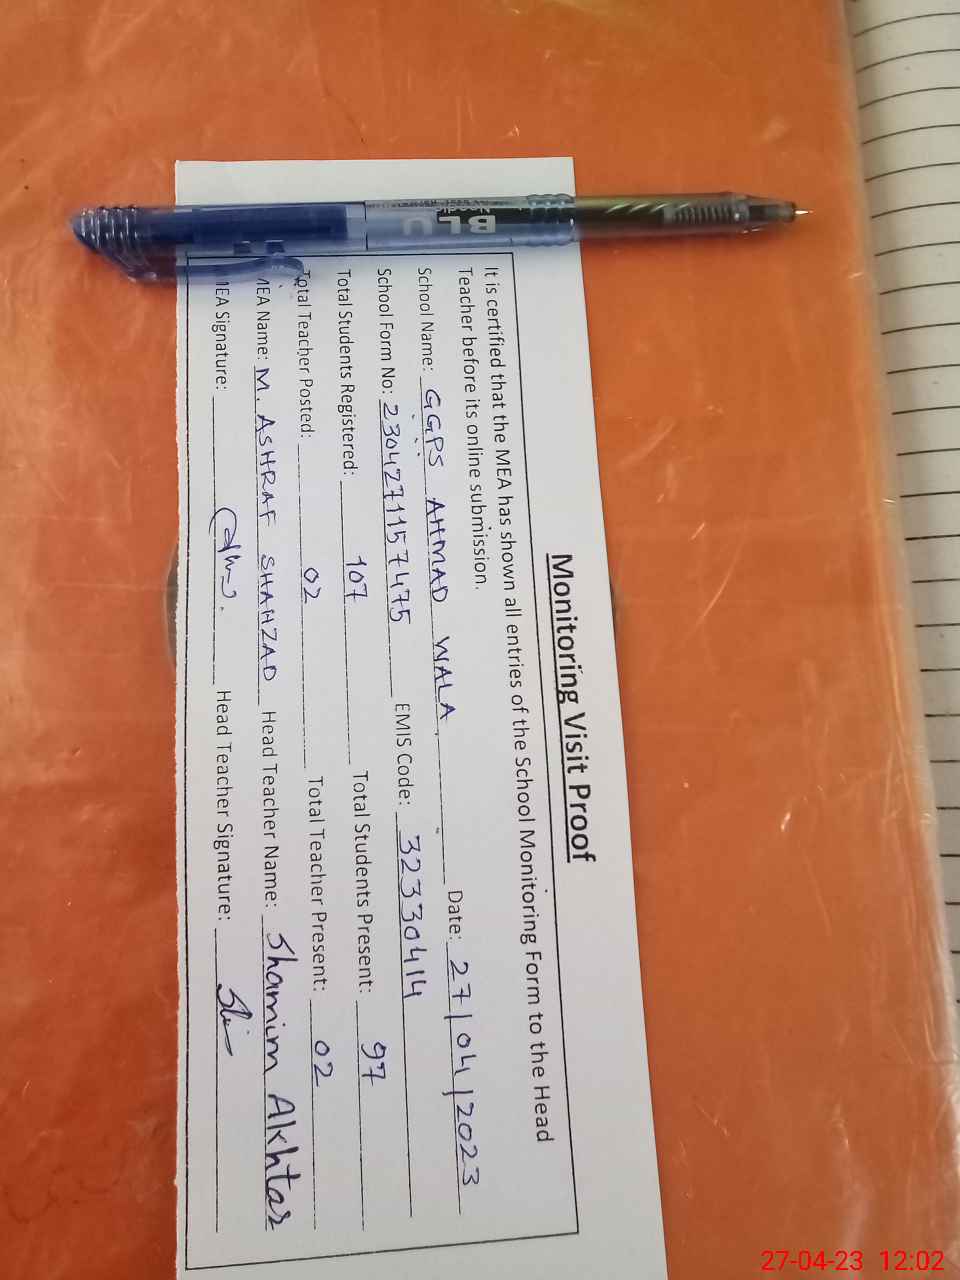 Monitoring Visit Proof
It is certified that the MEA has shown all entries of the School Monitoring Form to the Head
Teacher before its online submission.
School Name: GGPS AHMAD WALA. Date: 27/04/2023
School Form No: 2304271157475 EMIS Code: 32330414
Total Students Registered: 107 Total Students Present: 97
Total Teacher Posted: 02 Total Teacher Present: 02
MEA Name: M. ASHRAF SHAHZAD Head Teacher Name: Shamim Akhtar
MEA Signature: Head Teacher Signature:
27-04-23 12:02